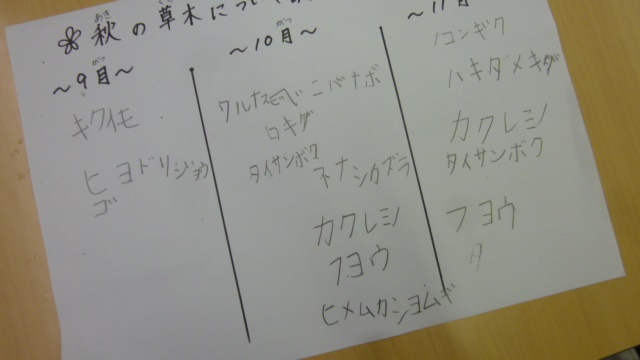 秋の草木について
あき
～9月～
がつ
キクイモ
ヒヨドリジョウ
ゴ
～10月～
がつ
ワルナスビ
ニバナボ
ロギク
タイサンボク
ネナシカズラ
カクレミノ
フヨウ
ヒメムカシヨムギ
～11月～
ノコンギク
ハキダメギク
カクレミノ
タイサンボク
フヨウ
タ